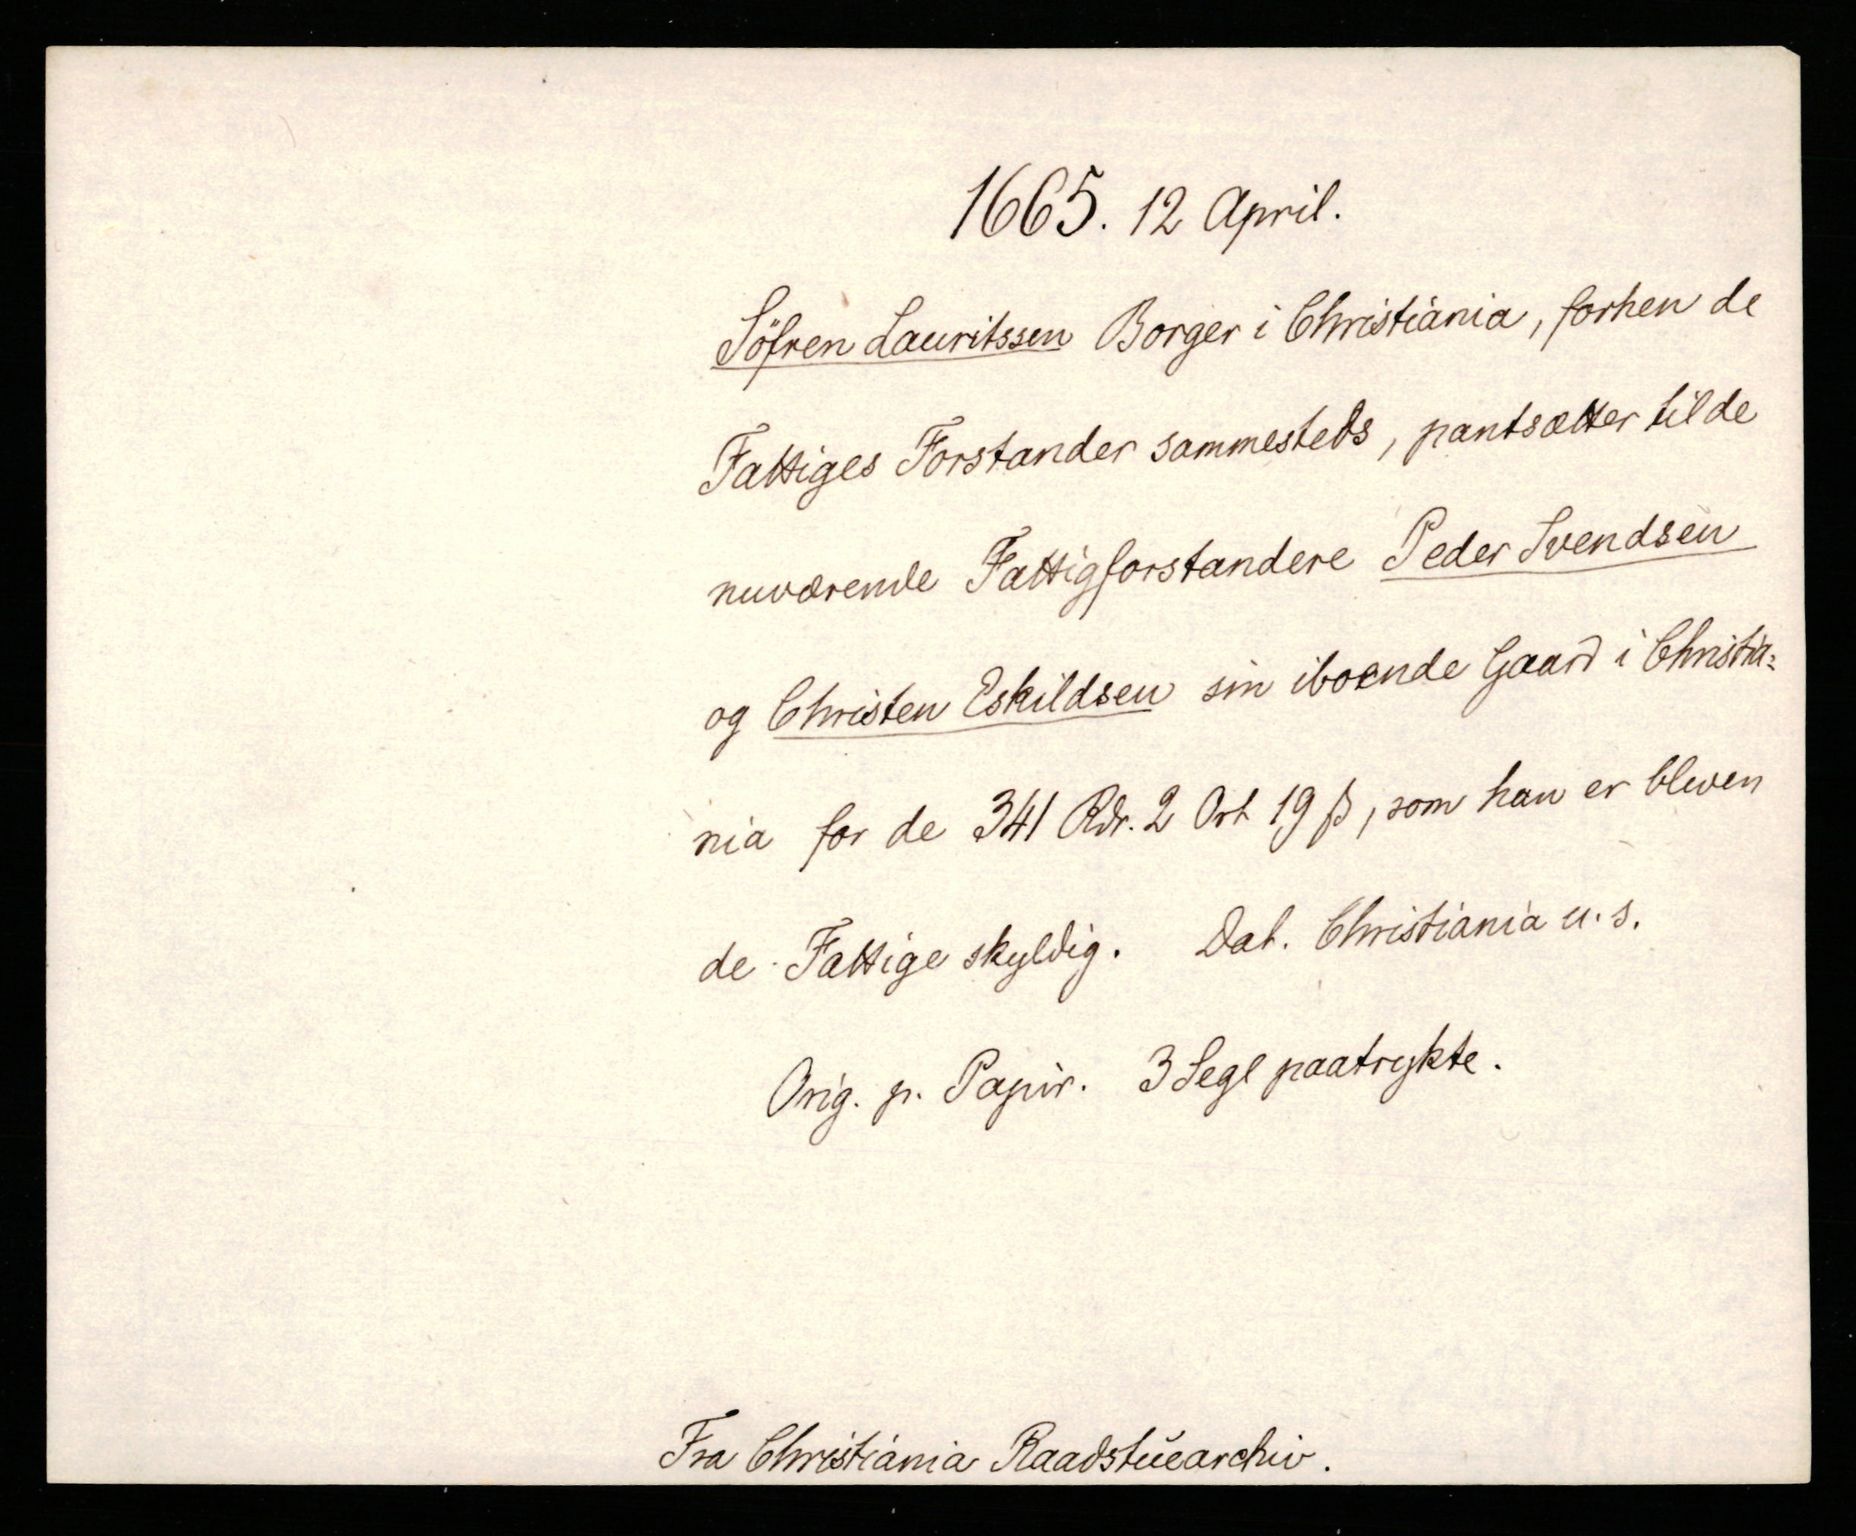 1665. 12 April.
Söfren Lauritssen Borger i Christiania, forhen de
Fattiges Forstander sammesteds, pantsætter til de
nuværende Fattigforstandere Peder Svendsen
og Christen Eskildsen sin iboende Gaard i Christia=
nia for de 341 Rdr. 2 Ort 19 ß, som han er bleven
de Fattige skyldig. Dat. Christiania u. s.
Orig. p. Papir. 3 Segl paatrykte.
Fra Christiania Raadstuearchiv.